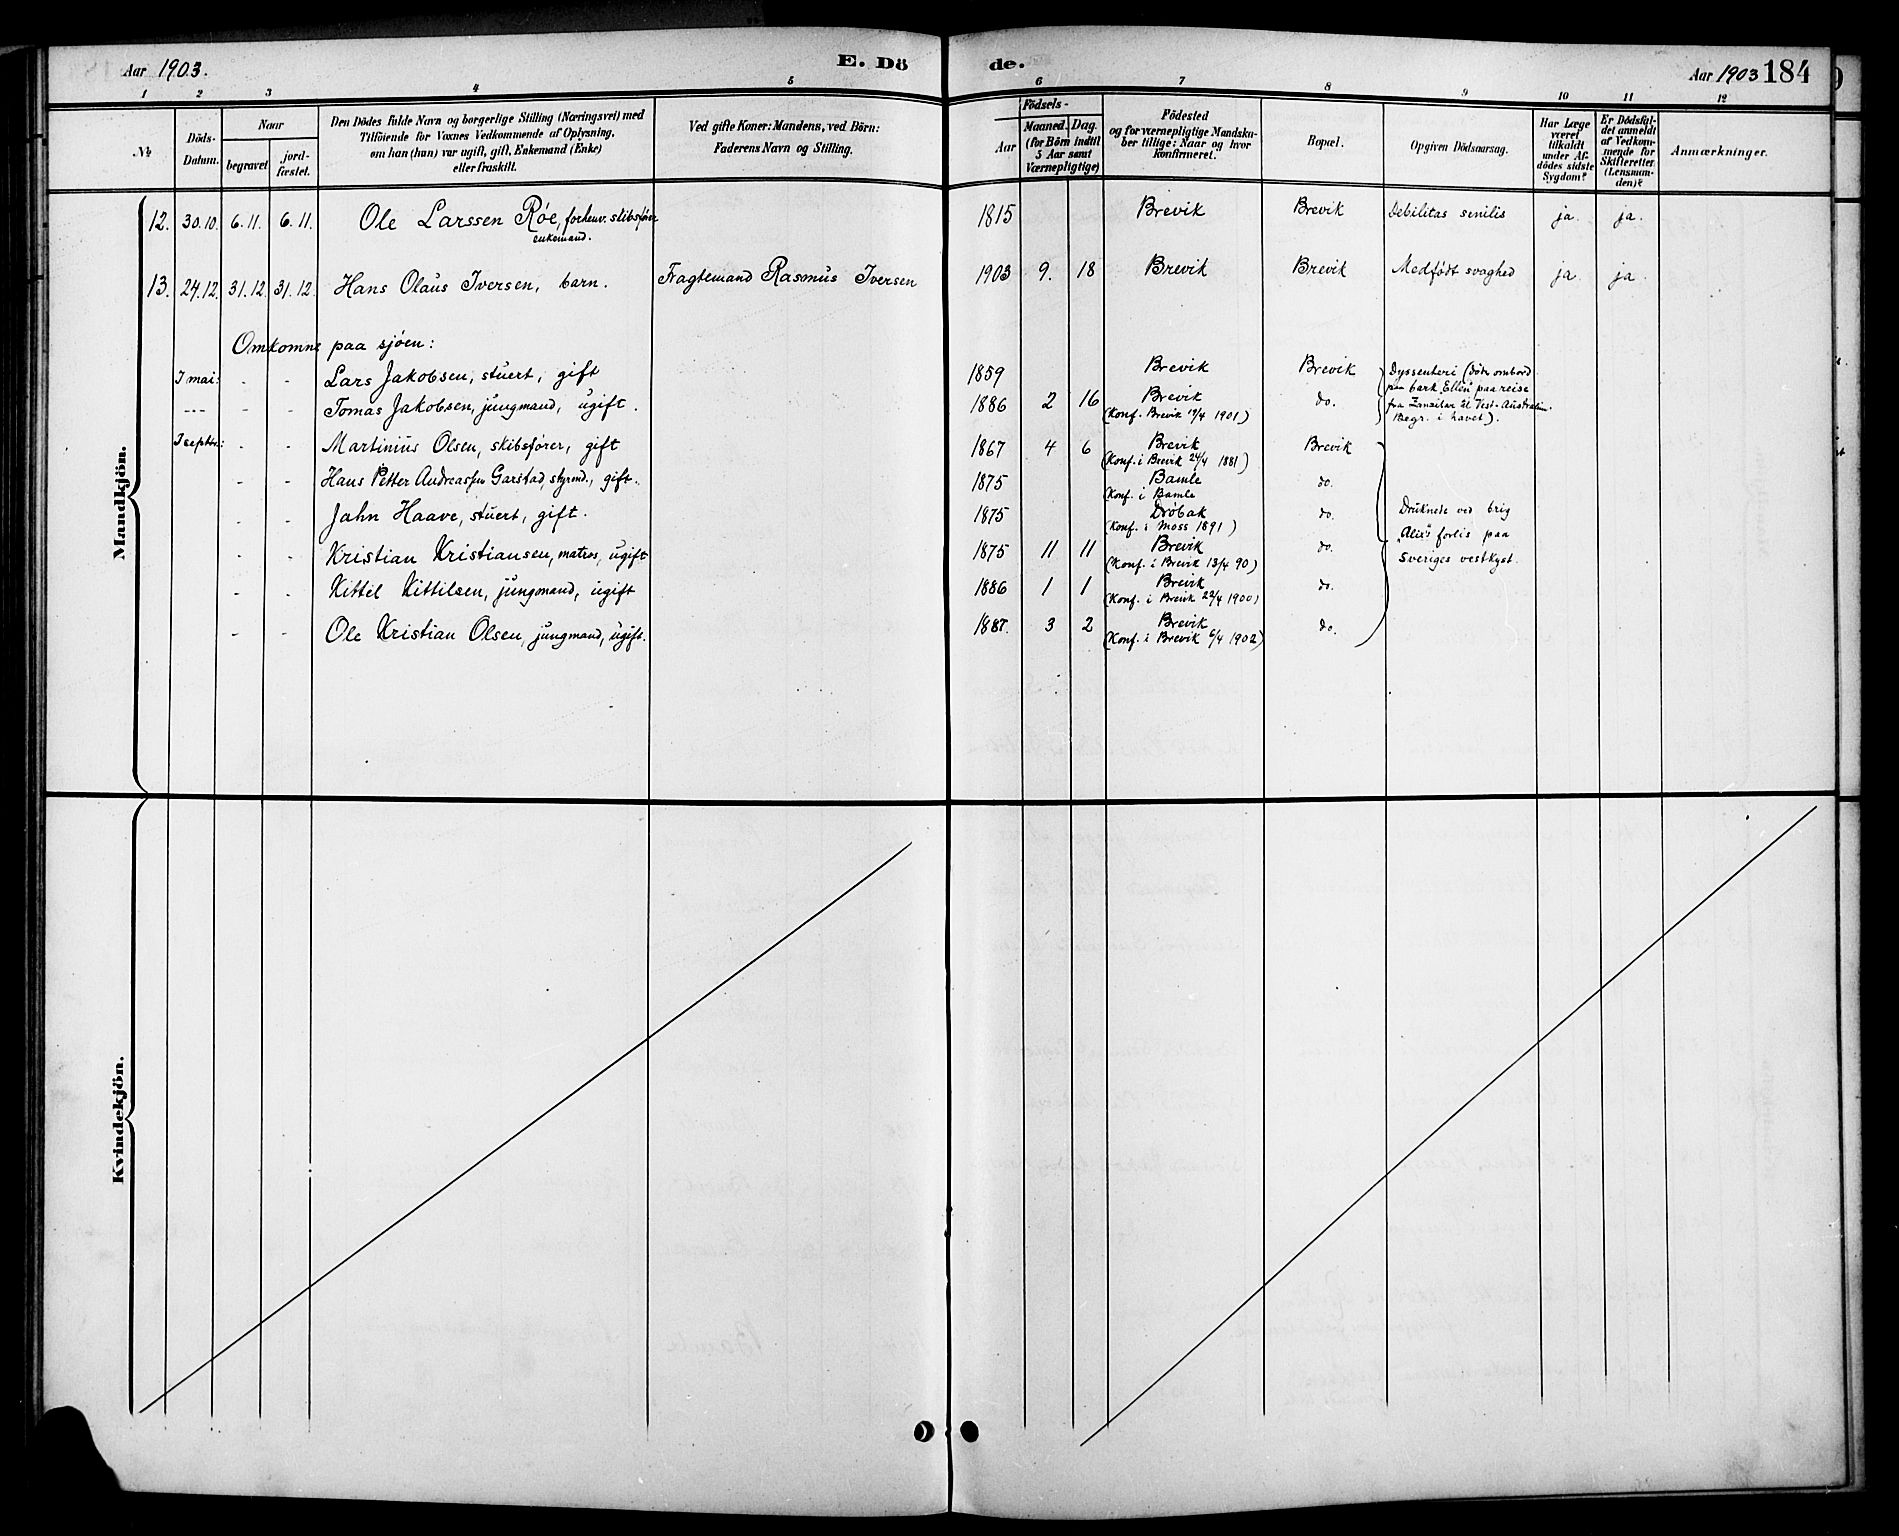 Aar 1903.
E. Dö
de.
Aar 1903
184
1 2 3 4 5 6 7 8 9 10 11 12
№
Döds-
Datum.
Naar
begravet
jord-
fæstet.
Den Dödes fulde Navn og borgerlige Stilling (Næringsvei) med
Tilföiende for Voxnes Vedkommende af Oplysning,
om han (hun) var ugift, gift, Enkemand (Enke)
eller fraskilt.
Ved gifte Koner: Mandens, ved Börn:
Faderens Navn og Stilling.
Födsels-
Aar
Maaned. Dag.
(for Börn indtil
5 Aar samt
Værnepligtige)
Födested
og for værnepligtige Mandska-
ber tillige: Naar og hvor
konfirmeret.
Bopæl.
Opgiven Dödsaarsag.
Har Læge
været
tilkaldt
under Af-
dödes sidste
Sygdom?
Er Dödsfal-
det anmeldt
af Vedkom-
mende for
Skifteretten
(Lensman-
den)?
Anmærkninger.
Mandkjön.
12. 30.10. 6.11. 6.11. Ole Larssen Röe, forhenv. skibsfører
enkemand.
1815 Brevik Brevik Debilitas senilis ja. ja.
13. 24.12. 31.12. 31.12. Hans Olaus Iversen, barn. Fragtemand Rasmus Iversen 1903 9. 18 Brevik Brevik Medfödt svaghed ja. ja.
Omkomne paa sjøen:
I mai: - - Lars Jakobsen, stuert, gift 1859 Brevik Brevik
--- - - Tomas Jakobsen, jungmand, ugift. 1886 2 16 Brevik do.
(Konf. Brevik /4 1901)
Dyssenteri (döde ombord
paa bark "Ellen" paa reise
fra Zanzibar til Vest-Australien.
Begr. i havet).
I septbr: - - Martinius Olsen, skibsfører, gift 1867 4 6 Brevik Brevik
(Konf. i Brevik 24/4 1881)
- - Hans Petter Andreassen Garstad, styrmd., gift. 1875 Bamle do.
(Konf. i Bamle
- - Jahn Haave, stuert, gift. 1875 Dröbak do.
(Konf. i Moss 1891)
- - Kristian Kristiansen, matros, ugift 1875 11 11 Brevik do.
(Konf. i Brevik 13/4 90)
- - Kittel Kittilsen, jungmand, ugift 1886 1 1 Brevik do.
(Konf. i Brevik 22/4 1900)
- - Ole Kristian Olsen, jungmand, ugift. 1887. 3 2 Brevik do.
(Konf. i Brevik 6/4 1902)
Druknede ved brig
"Alix's" forlis paa
Sveriges vestkyst.
Kvindekjön.